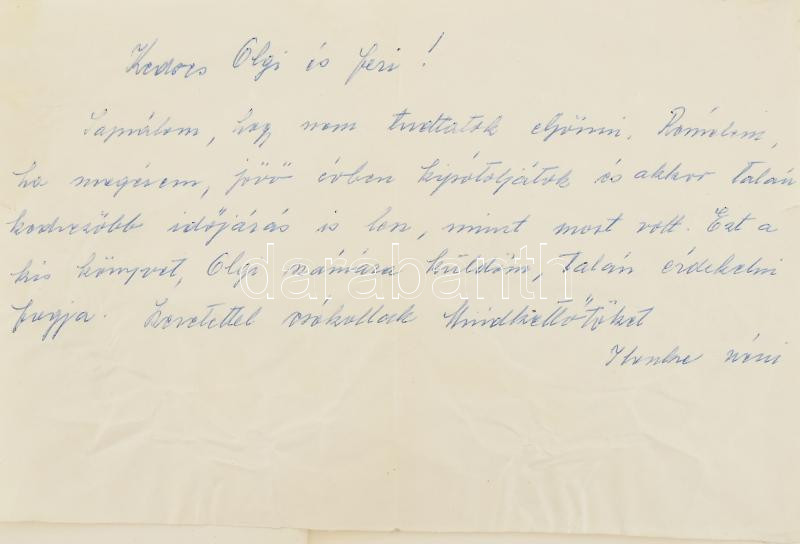 Kedves Olgi és Feri!
Sajnálom, hogy nem tudtatok eljönni. Remélem,
ha megérem, jövő évben kipótoljátok és akkor talán
kedvezőbb időjárás is lesz, mint most volt. Ezt a
kis könyvet, Olgi számára küldöm, talán érdekelni
fogja. Szeretettel csókollak Mindkettőtöket
Ilonka néni
darabanth